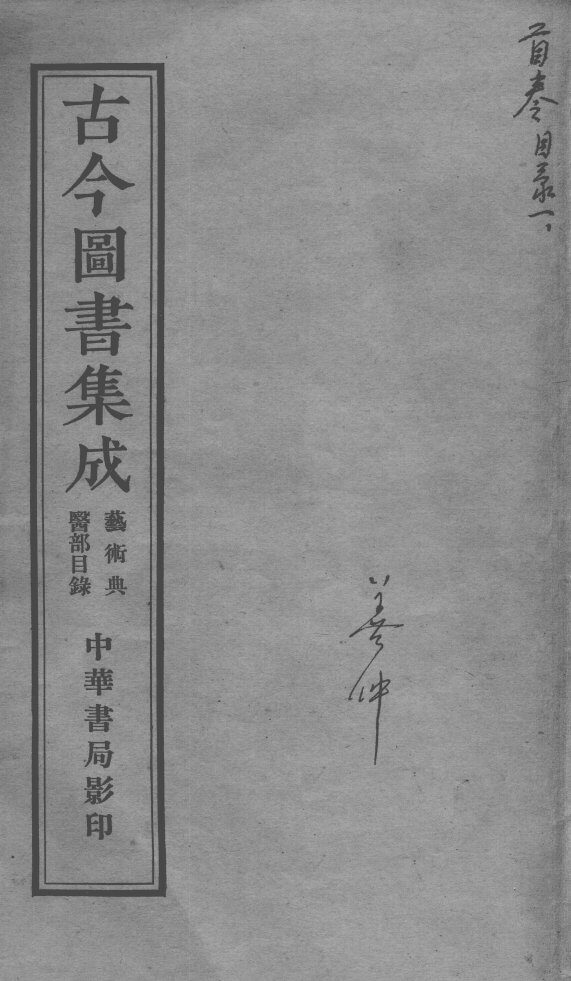 首卷目录一
善仲
古今圖書集成
藝術典
醫部目錄
中華書局影印